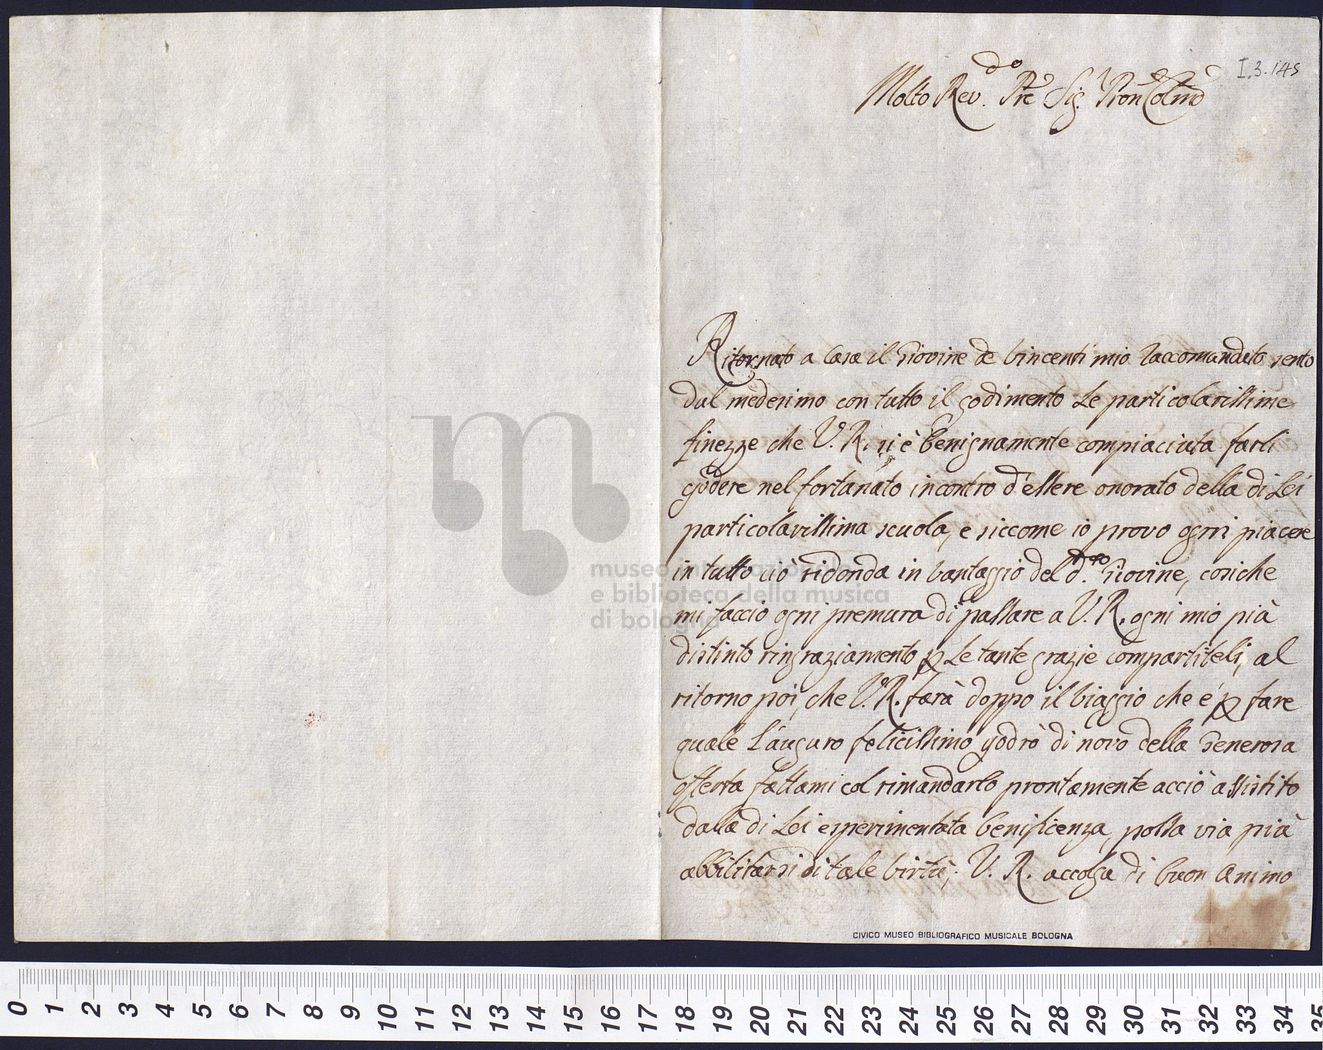 I.3.145
Molto Rev.do Pre Sig. Pron Colmo
Ritornato a Casa il Giovine de Vincenti mio raccomandato sento
dal medesimo con tutto il godimento Le particolarissime
finezze che V. R. si è benignamente compiaciuta farli
godere nel fortunato incontro d'essere onorato della di Lei
particolarissima scuola, e siccome io provo ogni piacere
in tutto ciò ridonda in vantaggio del d.to Giovine, cosiche
mi faccio ogni premura di passare a V. R. ogni mio più
distinto ringraziamento p Le tante grazie compartiteli, al
ritorno poi, che V. R. farà doppo il viaggio che é p fare
quale L'auguro felicissimo godrò di novo della Generosa
offerta fattami col rimandarlo prontamente acciò assistito
dalla di Lei esperimentata benificenza, possa via più
abbilitarsi di tale virtù; V. R. accolga di buon animo
museo internazionale
e biblioteca della musica
di bologna
CIVICO MUSEO BIBLIOGRAFICO MUSICALE BOLOGNA
0 1 2 3 4 5 6 7 8 9 10 11 12 13 14 15 16 17 18 19 20 21 22 23 24 25 26 27 28 29 30 31 32 33 34 35